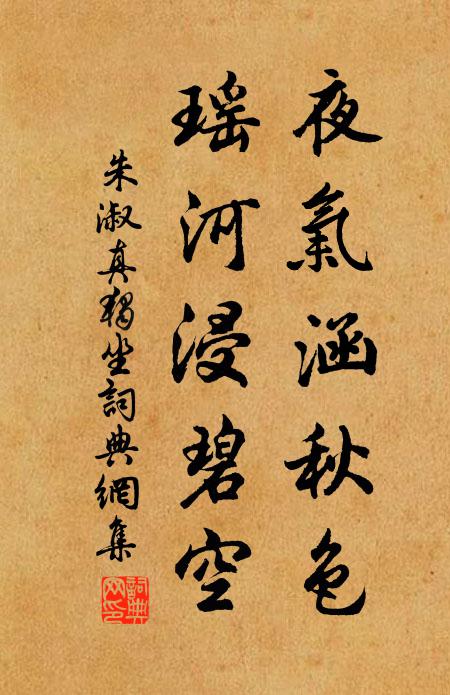 夜氣涵秋色
瑶河浸碧空
朱淑真獨坐詞典網集
詞典
网印